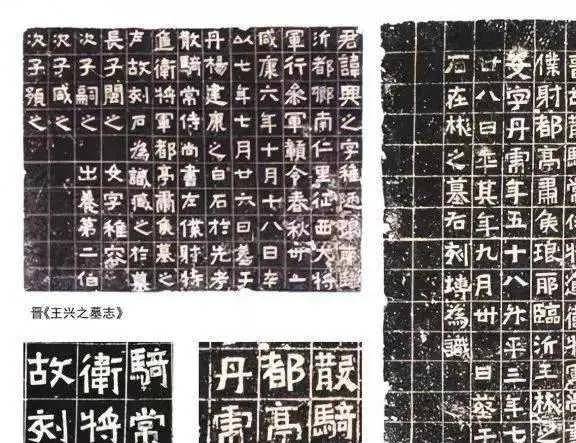 君諱興之字稚陋琅耶臨
沂都鄉南仁里征西大將
軍行參軍贛令春秋卅一
咸康六年十月十八日卒
以七年七月廿六日葬于
丹楊建康之白石於先考
散騎常侍尚書左僕射特
進衛將軍都亭肅侯墓之
左故刻石為識臧之於墓
長子閩之 女字稚容
次子嗣之 出養第二伯
次子咸之
次子預之
晋《王兴之墓志》
僕射都亭肅侯琅耶臨沂王彬之
女字丹虎年五十八升平三年七
廿八日卒其年九月卅日葬于
石在彬之墓右刻塼為識
騎常
衛將
故刻
散騎
都亭
丹虎